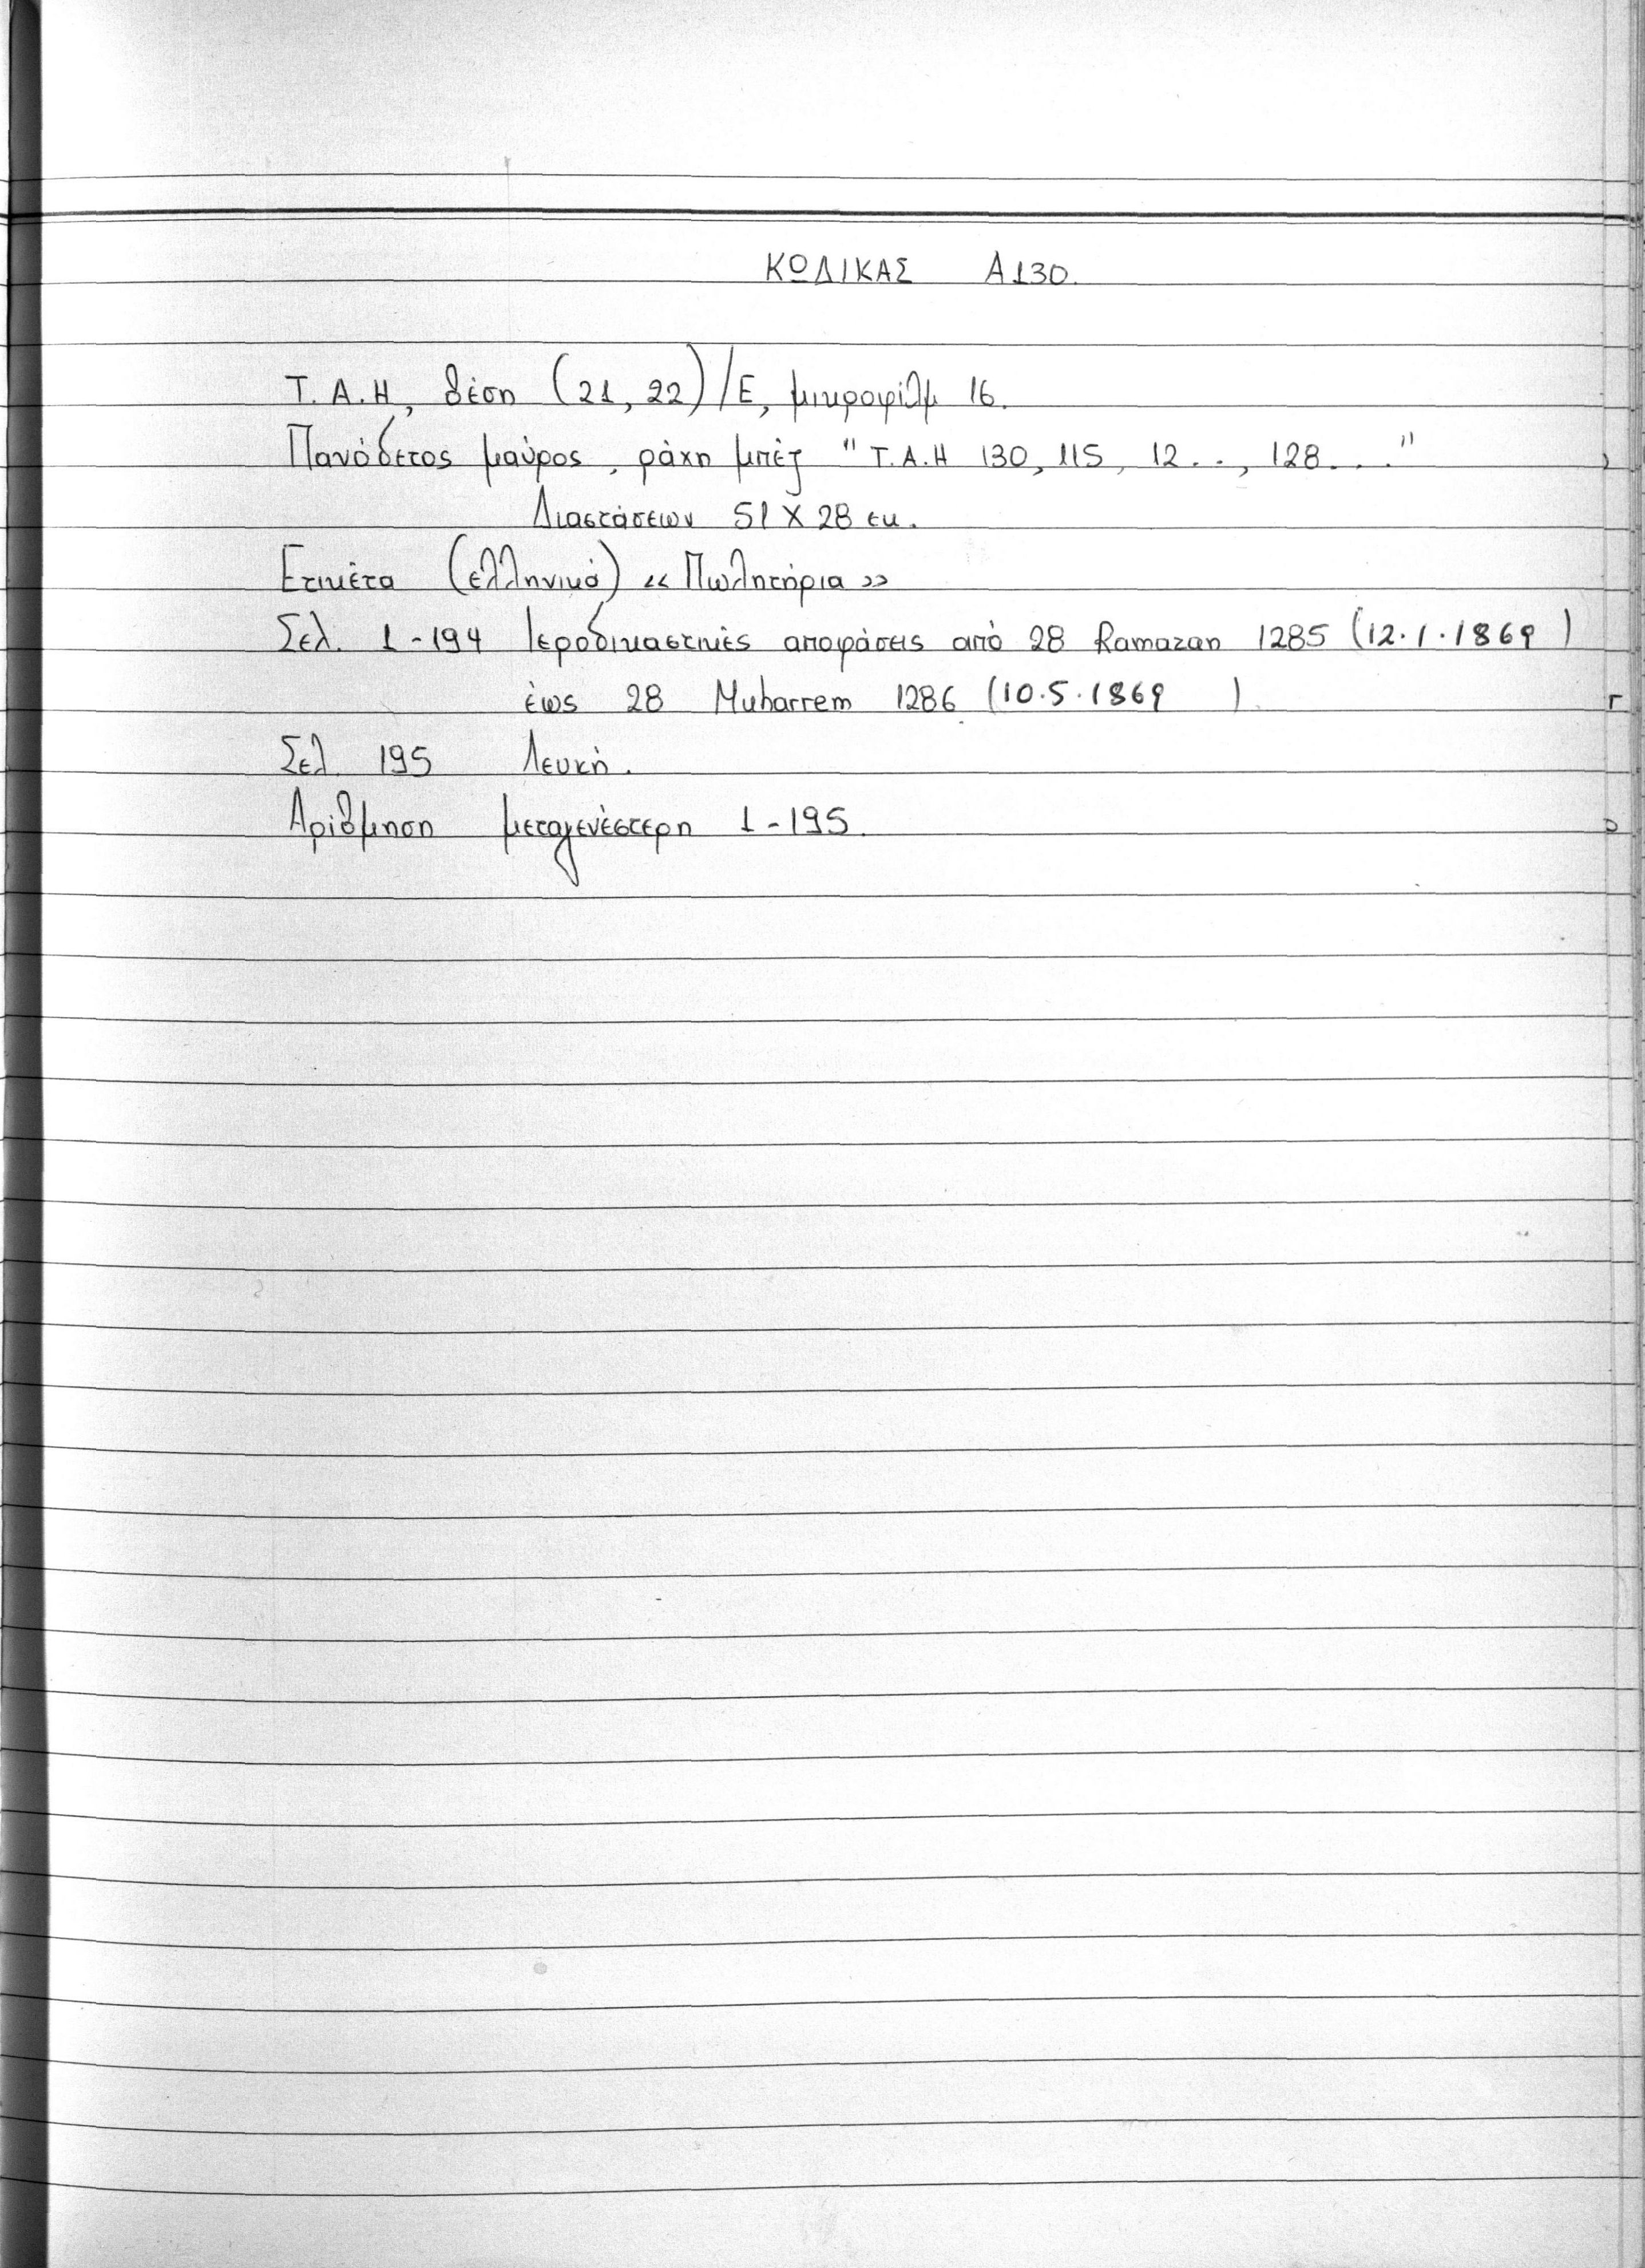 ΚΩΔΙΚΑΣ Α130.
Τ.Α.Η, θέση (21, 22)/Ε, μικροφίλμ 16.
Πανόδετος μαύρος, ράχη μπέζ "Τ.Α.Η 130, 115, 12.., 128..."
Διαστάσεων 51 Χ 28 εκ.
Ετικέτα (ελληνικά) « Πωλητήρια »
Σελ. 1-194 Ιεροδικαστικές αποφάσεις από 28 Ramazan 1285 (12.1.1869)
έως 28 Muharrem 1286 (10.5.1869 ).
Σελ. 195 Λευκή.
Αρίθμηση μεταγενέστερη 1-195.